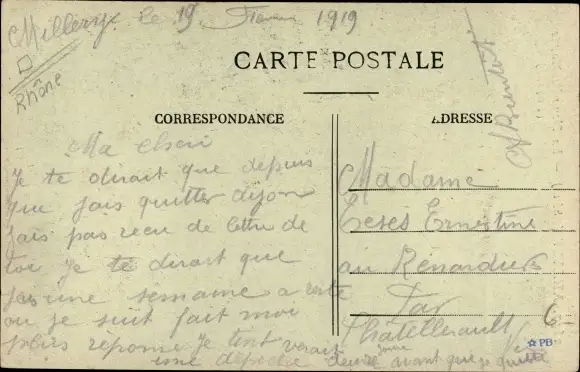 Millery. le 19 Février 1919
Rhône
CARTE POSTALE
CORRESPONDANCE
ADRESSE
Ma cheri
Je te dirait que depuis
que jais quitter dijon
jais pas recu de lettre de
toi je te dirait que
jais une semaine a
ou je suit fait moi
reponse Je
une depeche avant que je quitte
Madame
Ernestine
au Renardières
Par
Châtellerault
6-
PB